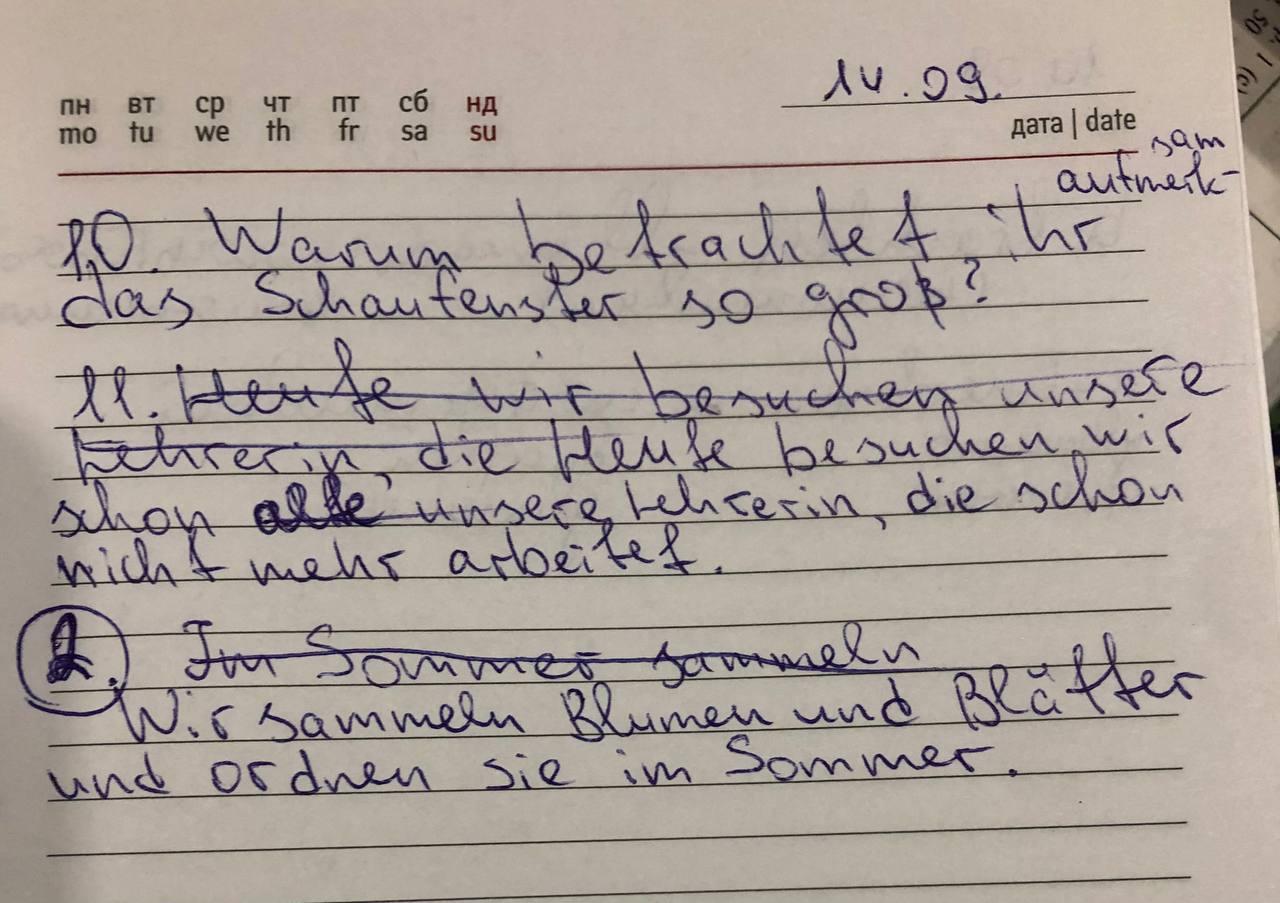 пн вт ср чт пт сб нд
mo tu we th fr sa su
14.09.
дата | date
sam
aufmerk-
10. Warum betrachtet ihr
das Schaufenster so groß?
11. Heute wir besuchen unsere
Lehrerin, die Heute besuchen wir
schon alte unsere Lehrerin, die schon
nicht mehr arbeitet.
2. Im Sommer sammeln
Wir sammeln Blumen und Blätter
und ordnen sie im Sommer.